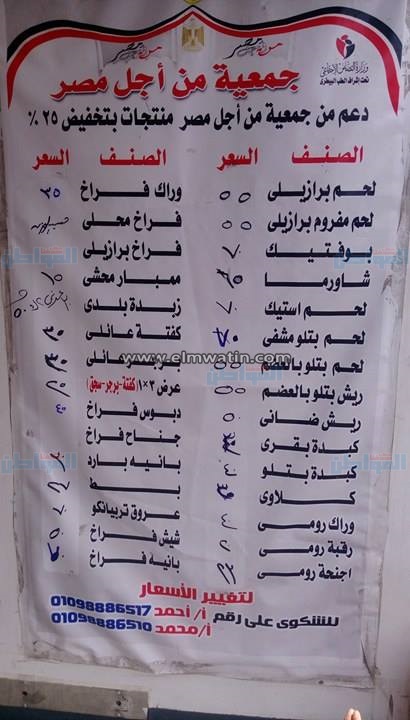 من أجل مصر
من أجل مصر
وزارة التضامن الاجتماعي
جمعية من أجل مصر
دعم من جمعية من أجل مصر منتجات بتخفيض ٢٥ %
الصنف السعر الصنف السعر
لحم برازيلى ٥٥ وراك فراخ ٣٥
لحم مفروم برازيلى ٥٥ فراخ محلى
بوفتيك فراخ برازيلى
شاورما ممبار محشى
لحم استيك زبدة بلدى
لحم بتلو مشفى كفتة عائلى ٣٠
لحم بتلو بالعضم برجر عائلى
ريش بتلو بالعضم عرض ٣×١ (كفتة-برجر-سجق)
ريش ضانى دبوس فراخ
كبدة بقرى جناح فراخ
كبدة بتلو بانيه بارد
كلاوى بط
وراك رومى عروق تربيانكو
رقبة رومى شيش فراخ
اجنحة رومى بانية فراخ
لتغيير الأسعار
للشكوى على رقم أ/ أحمد 01098886517
أ/محمد 01098886510
www.elmwatin.com
المواطن